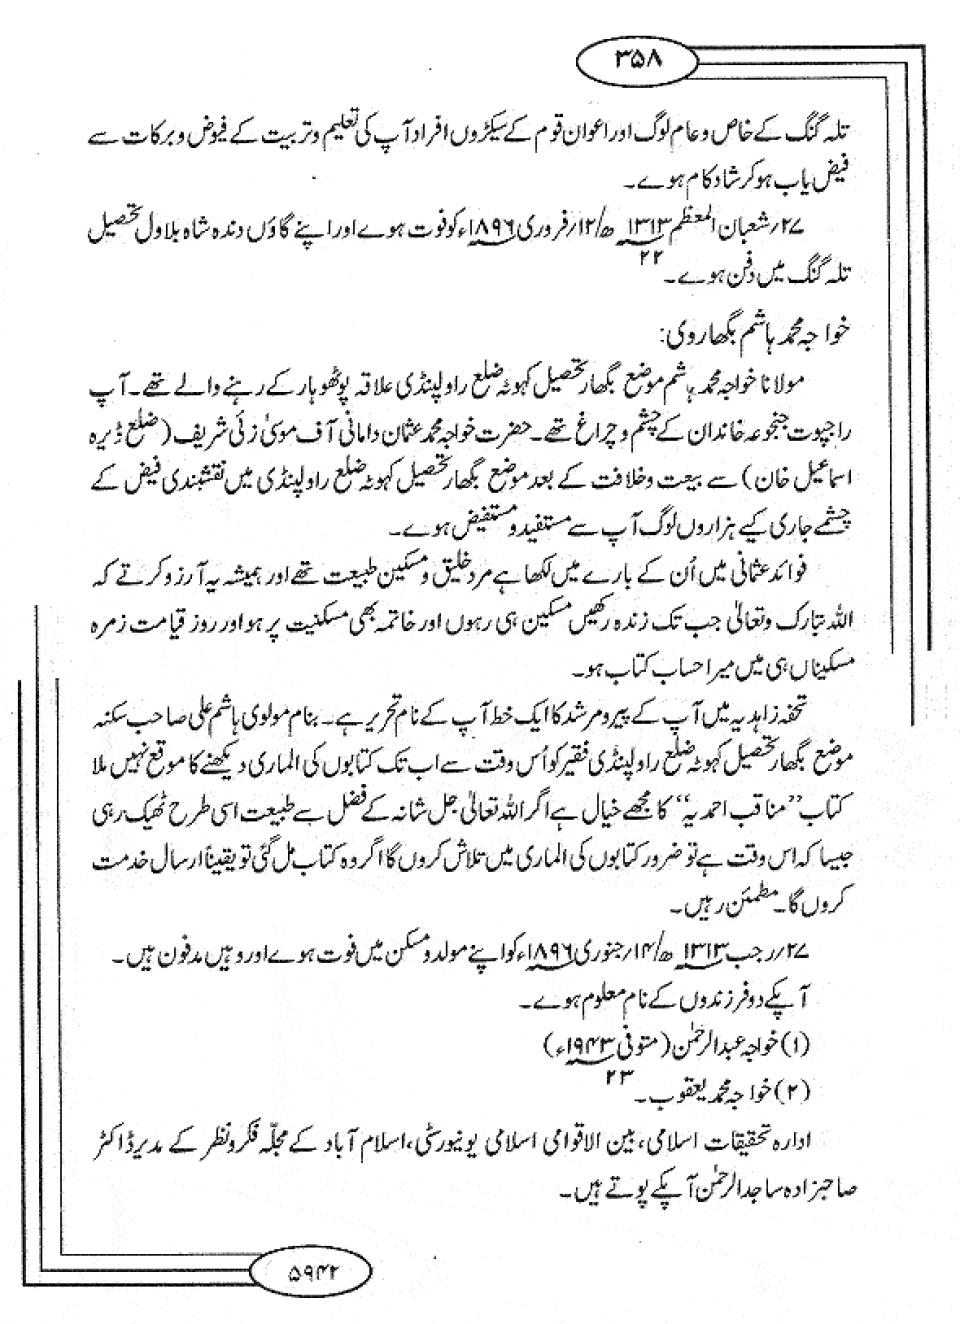 ۳۵۸
تلہ گنگ کے خاص و عام لوگ اور اعوان قوم کے سیکڑوں افراد آپ کی تعلیم و تربیت کے فیوض و برکات سے
فیض یاب ہو کر شاد کام ہوے۔
۲۷؍شعبان المعظم ۱۳۱۳ھ/۱۲؍فروری ۱۸۹۶ء کو فوت ہوے اور اپنے گاؤں دندہ شاہ بلاول تحصیل
تلہ گنگ میں دفن ہوے۔ ۲۲
خواجہ محمد ہاشم بگھاروی:
مولانا خواجہ محمد ہاشم موضع بگھار تحصیل کہوٹہ ضلع راولپنڈی علاقہ پوٹھوہار کے رہنے والے تھے۔ آپ
راجپوت جنجوعہ خاندان کے چشم و چراغ تھے۔ حضرت خواجہ محمد عثمان دامانی آف موسیٰ زئی شریف (ضلع ڈیرہ
اسماعیل خان) سے بیعت و خلافت کے بعد موضع بگھار تحصیل کہوٹہ ضلع راولپنڈی میں نقشبندی فیض کے
چشمے جاری کیے ہزاروں لوگ آپ سے مستفید و مستفیض ہوے۔
فوائد عثمانی میں اُن کے بارے میں لکھا ہے مرد خلیق و مسکین طبیعت تھے اور ہمیشہ یہ آرزو کرتے کہ
اللہ تبارک وتعالیٰ جب تک زندہ رکھیں مسکین ہی رہوں اور خاتمہ بھی مسکنیت پر ہو اور روز قیامت زمرہ
مسکیناں ہی میں میرا حساب کتاب ہو۔
تحفہ زاہدیہ میں آپ کے پیر و مرشد کا ایک خط آپ کے نام تحریر ہے۔ بنام مولوی ہاشم علی صاحب سکنہ
موضع بگھار تحصیل کہوٹہ ضلع راولپنڈی فقیر کو اُس وقت سے اب تک کتابوں کی الماری دیکھنے کا موقع نہیں ملا
کتاب ”مناقب احمدیہ“ کا مجھے خیال ہے اگر اللہ تعالیٰ جل شانہ کے فضل سے طبیعت اسی طرح ٹھیک رہی
جیسا کہ اس وقت ہے تو ضرور کتابوں کی الماری میں تلاش کروں گا اگر وہ کتاب مل گئی تو یقیناً ارسال خدمت
کروں گا۔ مطمئن رہیں۔
۲۷؍رجب ۱۳۱۳ھ/۱۴؍جنوری ۱۸۹۶ء کو اپنے مولد و مسکن میں فوت ہوے اور وہیں مدفون ہیں۔
آپکے دو فرزندوں کے نام معلوم ہوے۔
(۱) خواجہ عبدالرحمٰن (متوفی ۱۹۴۳ء)
(۲) خواجہ محمد یعقوب۔ ۲۳
ادارہ تحقیقات اسلامی، بین الاقوامی اسلامی یونیورسٹی، اسلام آباد کے مجلّہ فکر و نظر کے مدیر ڈاکٹر
صاحبزادہ ساجدالرحمٰن آپکے پوتے ہیں۔
۵۹۴۲